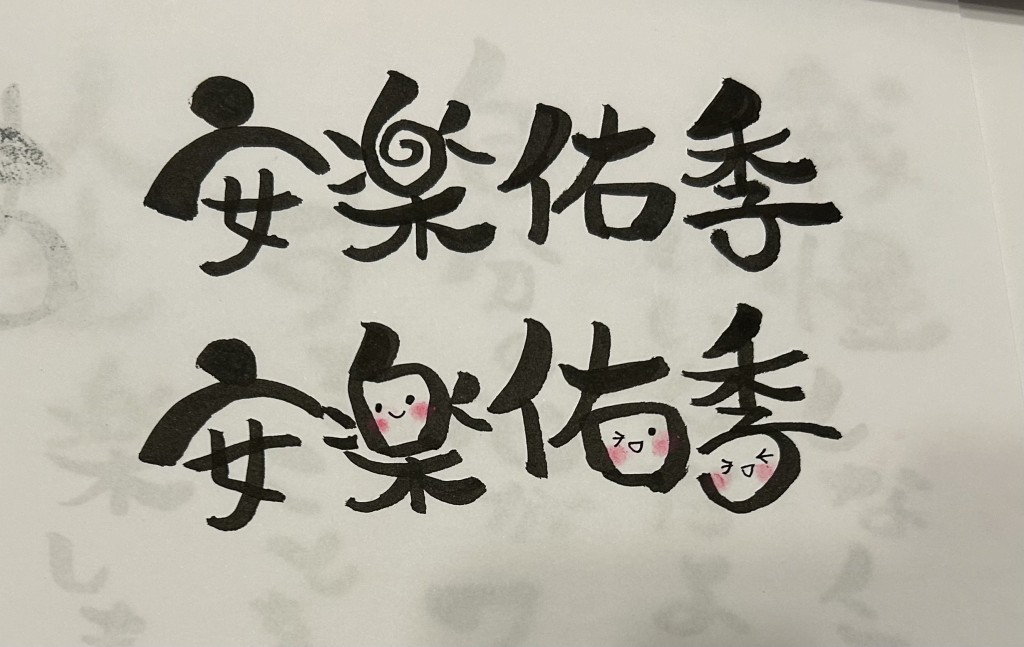 安楽佑季
安楽佑季